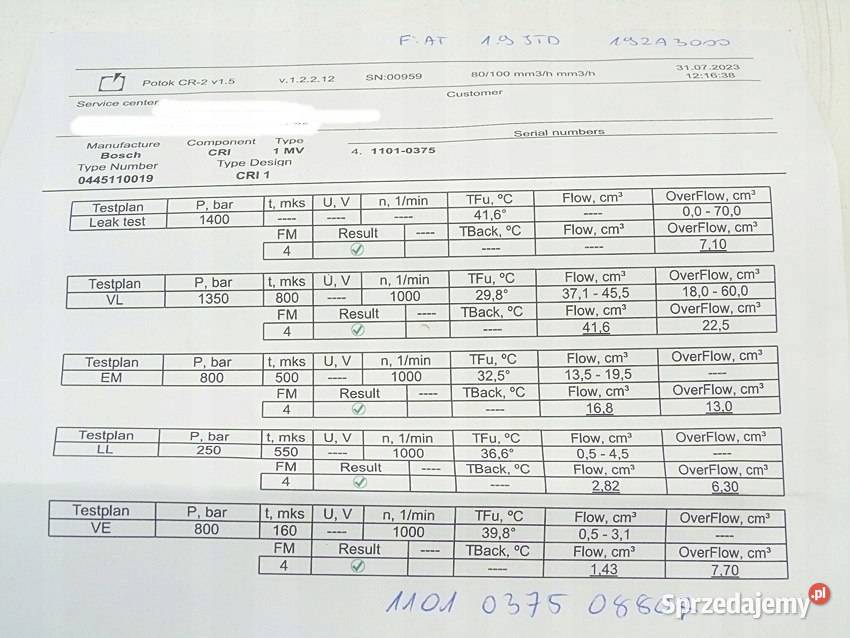 FiAT 1.9 JTD 192A3000
Potok CR-2 v1.5 v.1.2.2.12 SN:00959 80/100 mm3/h mm3/h 31.07.2023 12:16:38
Service center Customer
Manufacture Component Type Serial numbers
Bosch CRI 1 MV 4. 1101-0375
Type Number Type Design
0445110019 CRI 1
Testplan P, bar t, mks U, V n, 1/min TFu, ºC Flow, cm³ OverFlow, cm³
Leak test 1400 ---- ---- ---- 41,6° ---- 0,0 - 70,0
FM Result ---- TBack, ºC Flow, cm³ OverFlow, cm³
4 ---- ---- 7,10
Testplan P, bar t, mks U, V n, 1/min TFu, ºC Flow, cm³ OverFlow, cm³
VL 1350 800 ---- 1000 29,8° 37,1 - 45,5 18,0 - 60,0
FM Result ---- TBack, ºC Flow, cm³ OverFlow, cm³
4 ---- 41,6 22,5
Testplan P, bar t, mks U, V n, 1/min TFu, ºC Flow, cm³ OverFlow, cm³
EM 800 500 ---- 1000 32,5° 13,5 - 19,5 ----
FM Result ---- TBack, ºC Flow, cm³ OverFlow, cm³
4 ---- 16,8 13,0
Testplan P, bar t, mks U, V n, 1/min TFu, ºC Flow, cm³ OverFlow, cm³
LL 250 550 ---- 1000 36,6° 0,5 - 4,5 ----
FM Result ---- TBack, ºC Flow, cm³ OverFlow, cm³
4 ---- 2,82 6,30
Testplan P, bar t, mks U, V n, 1/min TFu, ºC Flow, cm³ OverFlow, cm³
VE 800 160 ---- 1000 39,8° 0,5 - 3,1 ----
FM Result ---- TBack, ºC Flow, cm³ OverFlow, cm³
4 ---- 1,43 7,70
1101 0375
Sprzedajemy.pl